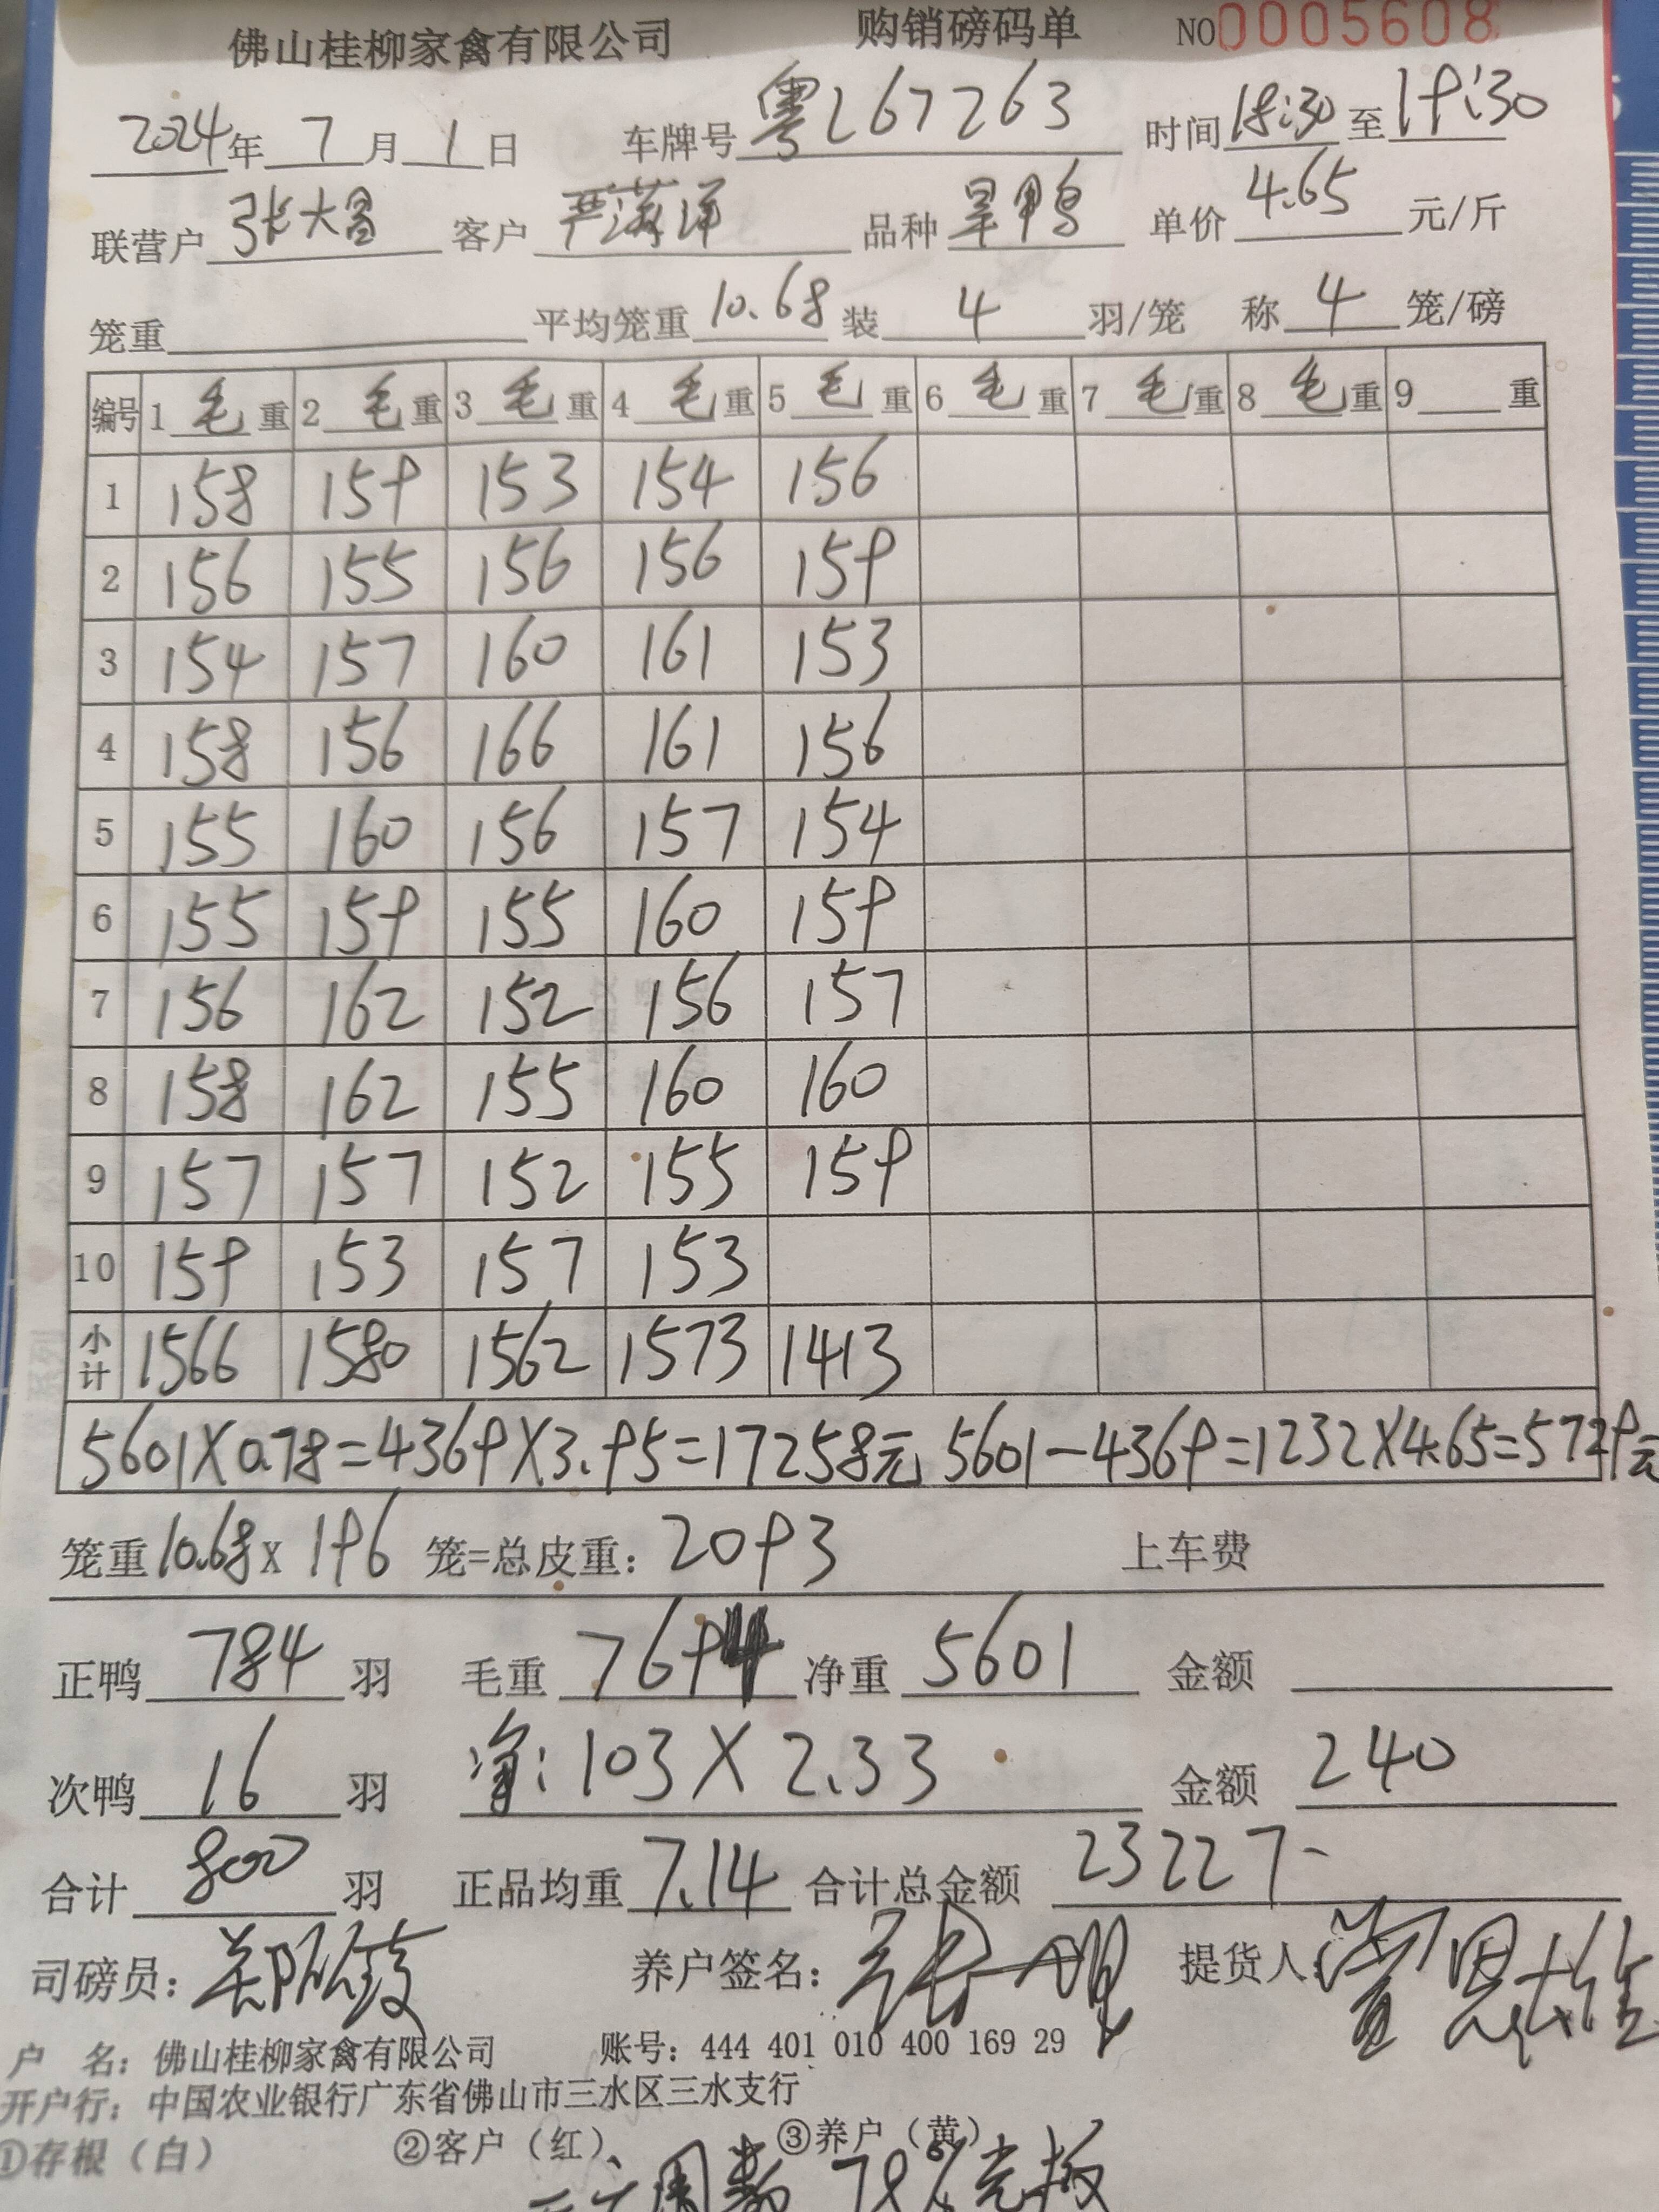 佛山桂柳家禽有限公司 购销磅码单 NO 0005608
2024年7月1日 车牌号 粤L67263 时间 18:30 至 19:30
联营户 张大昌 客户 品种 旱鸭 单价 4.65 元/斤
笼重 平均笼重 10.68 装 4 羽/笼 称 4 笼/磅
编号 1 毛 重 2 毛 重 3 毛 重 4 毛 重 5 毛 重 6 毛 重 7 毛 重 8 毛 重 9 重
1 158 159 153 154 156
2 156 155 156 156 159
3 154 157 160 161 153
4 158 156 166 161 156
5 155 160 156 157 154
6 155 159 155 160 159
7 156 162 152 156 157
8 158 162 155 160 160
9 157 157 152 155 159
10 159 153 157 153
小计 1566 1580 1562 1573 1413
5601×0.78=4369×3.95=17258元 5601-4369=1232×4.65=5729元
笼重 10.68 x 196 笼=总皮重: 2093 上车费
正鸭 784 羽 毛重 7694 净重 5601 金额
次鸭 16 羽 净:103×2.33 金额 240
合计 800 羽 正品均重 7.14 合计总金额 23227-
司磅员: 养户签名: 提货人:
户 名: 佛山桂柳家禽有限公司 账号: 444 401 010 400 169 29
开户行: 中国农业银行广东省佛山市三水区三水支行
①存根(白) ②客户(红) ③养户(黄)
78%